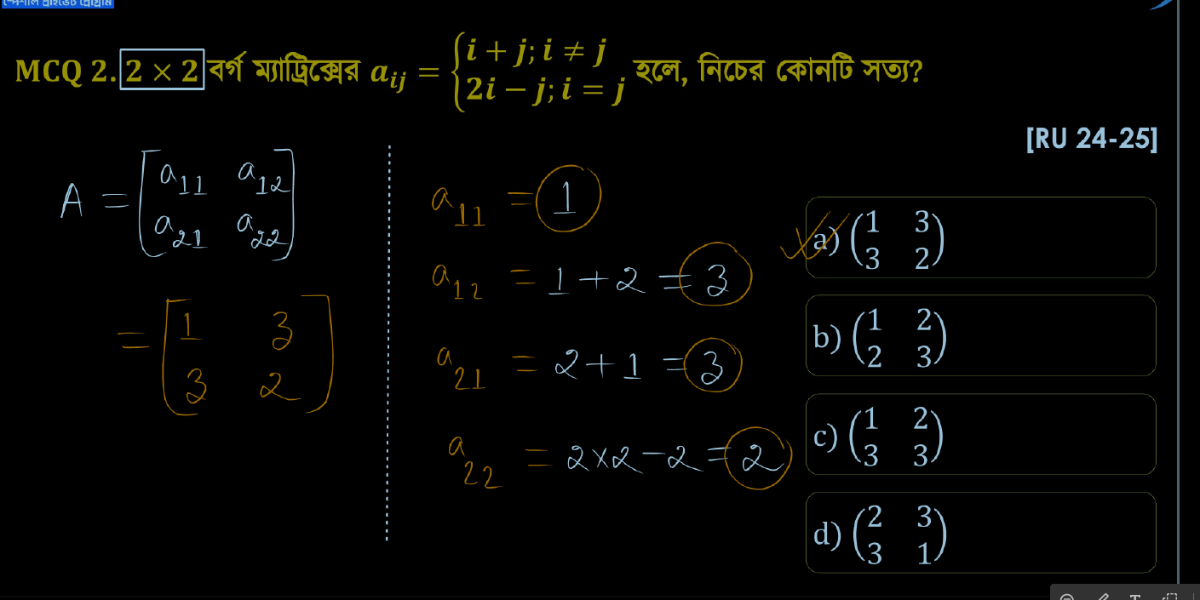 স্পেশাল প্রাইভেট প্রোগ্রাম
MCQ 2. 2 × 2 বর্গ ম্যাট্রিক্সের aᵢⱼ = { i + j; i ≠ j
2i − j; i = j হলে, নিচের কোনটি সত্য?
[RU 24-25]
A = [ a₁₁ a₁₂
a₂₁ a₂₂ ]
= [ 1 3
3 2 ]
a₁₁ = 1
a₁₂ = 1 + 2 = 3
a₂₁ = 2 + 1 = 3
a₂₂ = 2×2 − 2 = 2
a) ( 1 3
3 2 )
b) ( 1 2
2 3 )
c) ( 1 2
3 3 )
d) ( 2 3
3 1 )